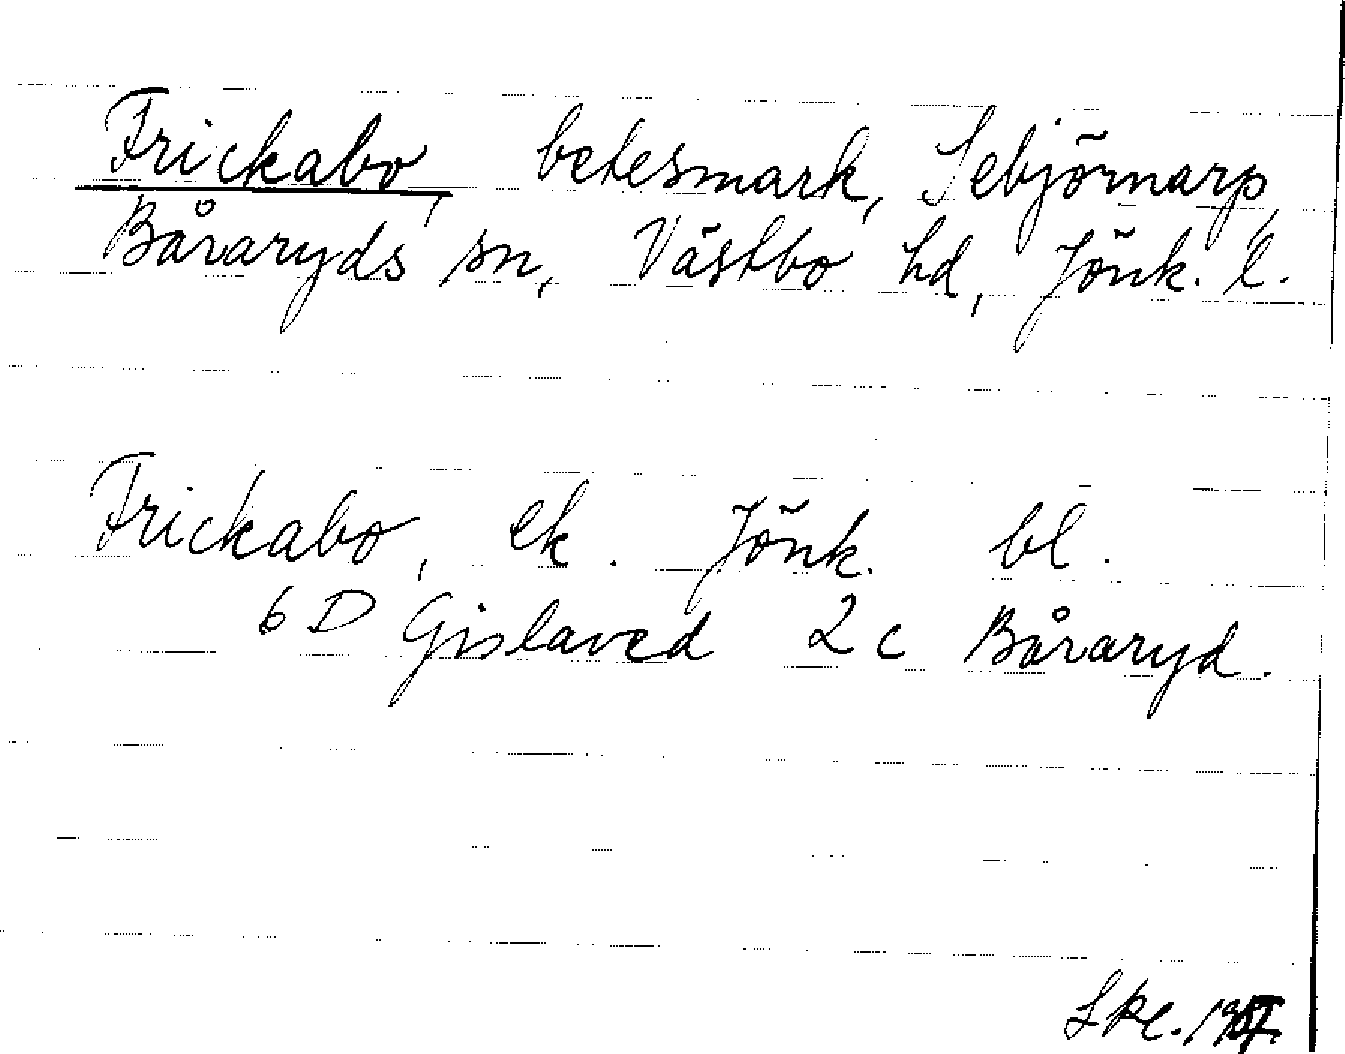 Frickabo, betesmark, Sebjörnarp,
Båraryds sn, Västbo hd, Jönk. l.
Frickabo, ek. Jönk. bl.
6 D Gislaved 2 c Båraryd.